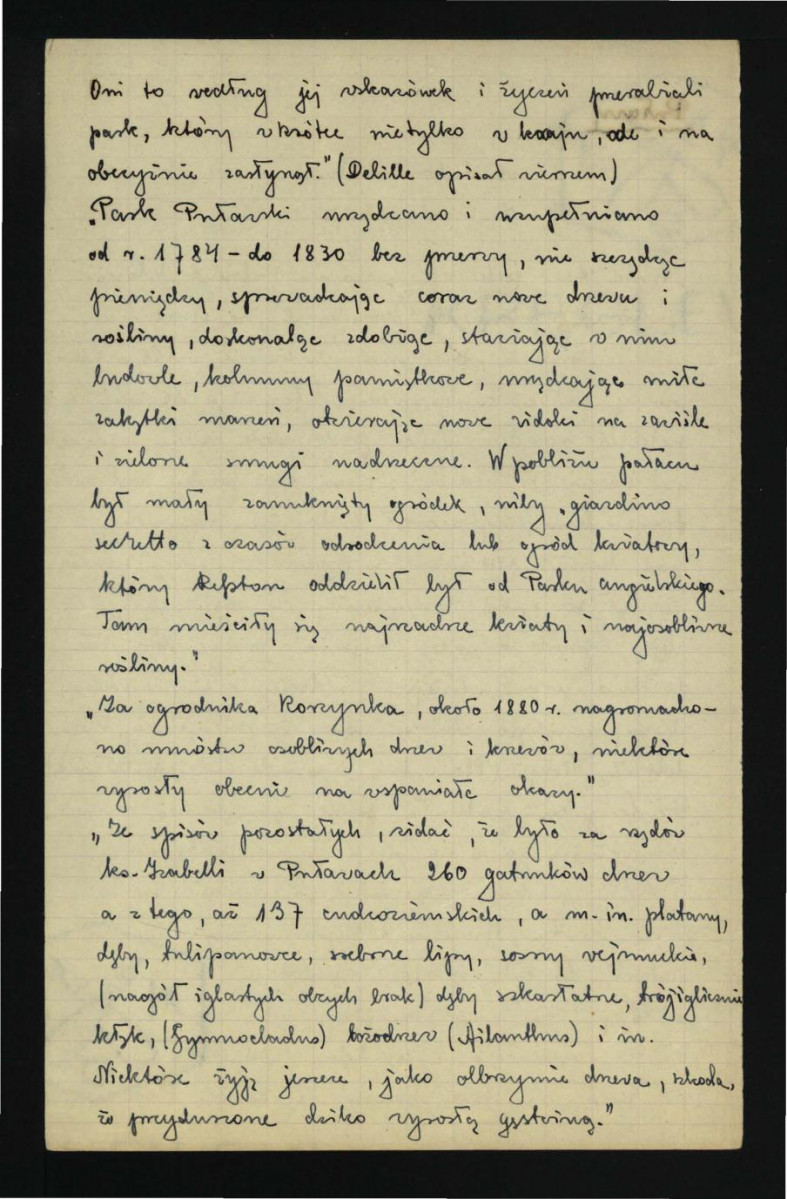 Oni to według jej wskazówek i życzeń przerabiali
park, który wkrótce nietylko w kraju, ale i na
obczyźnie zasłynął." (Delille opisał wierszem)
„Park Puławski urządzano i uzupełniano
od r. 1784 - do 1830 bez przerwy, nie szczędząc
pieniędzy, sprowadzając coraz nowe drzewa i
rośliny, doskonaląc zdobiąc, stawiając w nim
budowle, kolumny pamiątkowe, urządzając miłe
zakątki marzeń, otwierając nowe widoki na zawiśle
i zielone smugi nadrzeczne. W pobliżu pałacu
był mały zamknięty ogródek, niby „giardino
secretto z czasów odrodzenia lub ogród kwiatowy,
który Repton oddzielił był od Parku angielskiego.
Tam mieściły się najrzadsze kwiaty i najosobliwsze
rośliny."
„Za ogrodnika Korzynka, około 1880 r. nagromadzo-
no mnóstwo osobliwych drzew i krzewów, niektóre
wyrosły obecnie na wspaniałe okazy."
„Ze spisów pozostałych, widać, że było za rządów
ks. Izabelli w Puławach 260 gatunków drzew
a z tego, aż 137 cudzoziemskich, a m. in. platany,
dęby, tulipanowce, srebrne lipy, sosny wejmuckie,
(naogół iglastych obcych brak) dęby szkarłatne, trójiglicznie
kłęk, (Gymnocladus) bożodrzew (Ailanthus) i in.
Niektóre żyją jeszcze, jako olbrzymie drzewa, szkoda,
że przyduszone dziko wyrosłą gęstwiną."